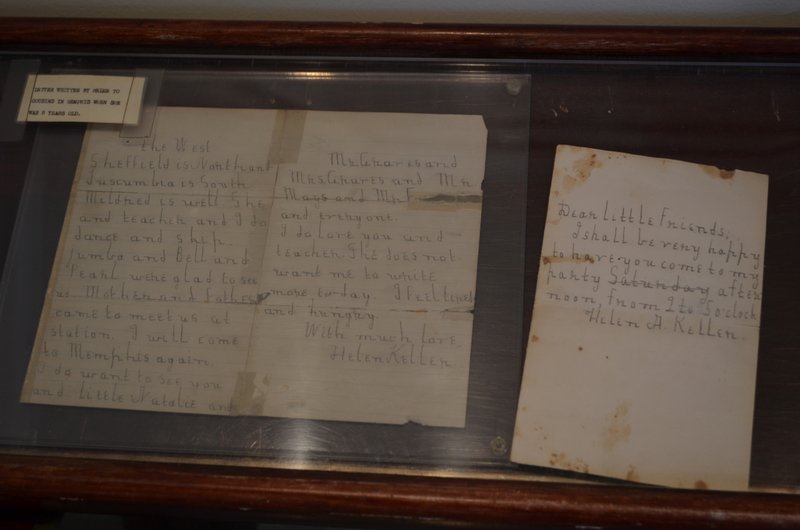 LETTER WRITTEN BY HELEN TO
COUSINS IN MEMPHIS WHEN SHE
WAS 8 YEARS OLD.
the West
Sheffield is North and
Tuscumbia is South
Mildred is well She
and teacher and I do
dance and skip.
Jumbo and Bell and
Pearl were glad to see
us Mother and Father
came to meet us at
station. I will come
to Memphis again.
I do want to see you
and little Natalie and
Mr. Graves and
Mrs. Graves and Mr.
Mays and Mr. F
and everyone.
I do love you and
teacher. She does not
want me to write
more today. I feel tired
and hungry
With much love,
Helen Keller.
Dear Little Friends;
I shall be very happy
to have you come to my
party Saturday after
noon, from 2 to 5 o'clock
Helen A. Keller.